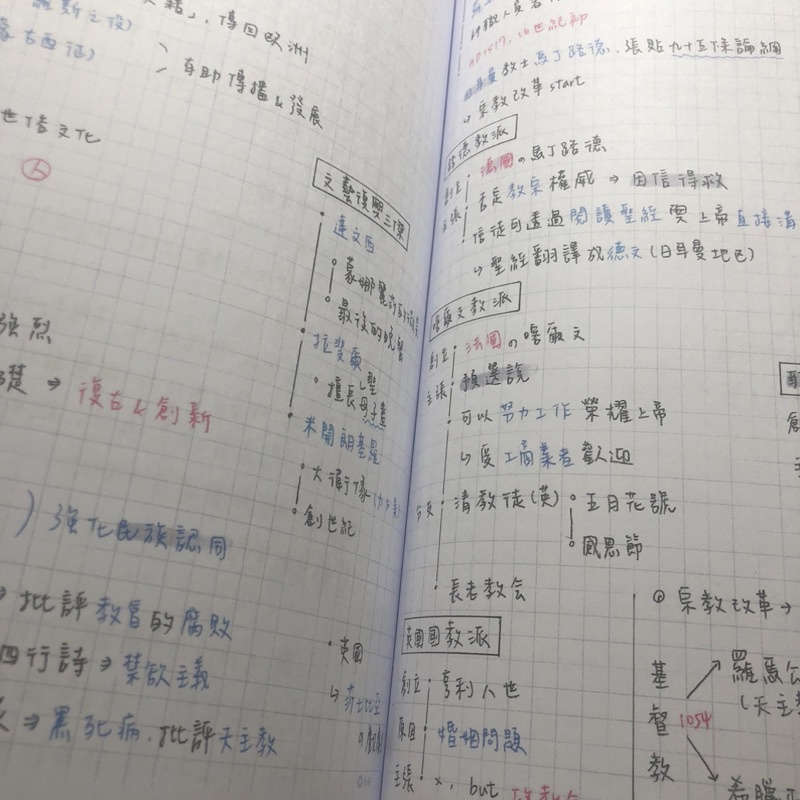 傳回歐洲
蒙古西征)
有助傳播&發展
世俗文化
人
強烈
礎 ⇒ 復古&創新
) 強化民族認同
批評教會的腐敗
四行詩 ⇒ 禁欲主義
⇒ 黑死病.批評天主教
文藝復興三傑
達文西
蒙娜麗莎的微笑
最後的晚餐
拉斐爾
擅長聖母子畫
米開朗基羅
大衛像
創世紀
英國
↳ 莎士比亞
AD1517, 16世紀初
教士馬丁路德, 張貼九十五條論綱
↳ 宗教改革 start
路德教派
創立 德國の馬丁路德
主張 否定教宗權威 → 因信得救
信徒可透過閱讀聖經與上帝直接溝
↳ 聖經翻譯成德文(日耳曼地區)
喀爾文教派
創立 法國の喀爾文
主張 預選說
可以努力工作榮耀上帝
↳ 受工商業者歡迎
分支 清教徒(英) 五月花號
感恩節
長老教会
英國國教派
創立 亨利八世
原因 婚姻問題
主張 ×, but
宗教改革 →
基督教 1054
羅馬公
(天主教
希臘正